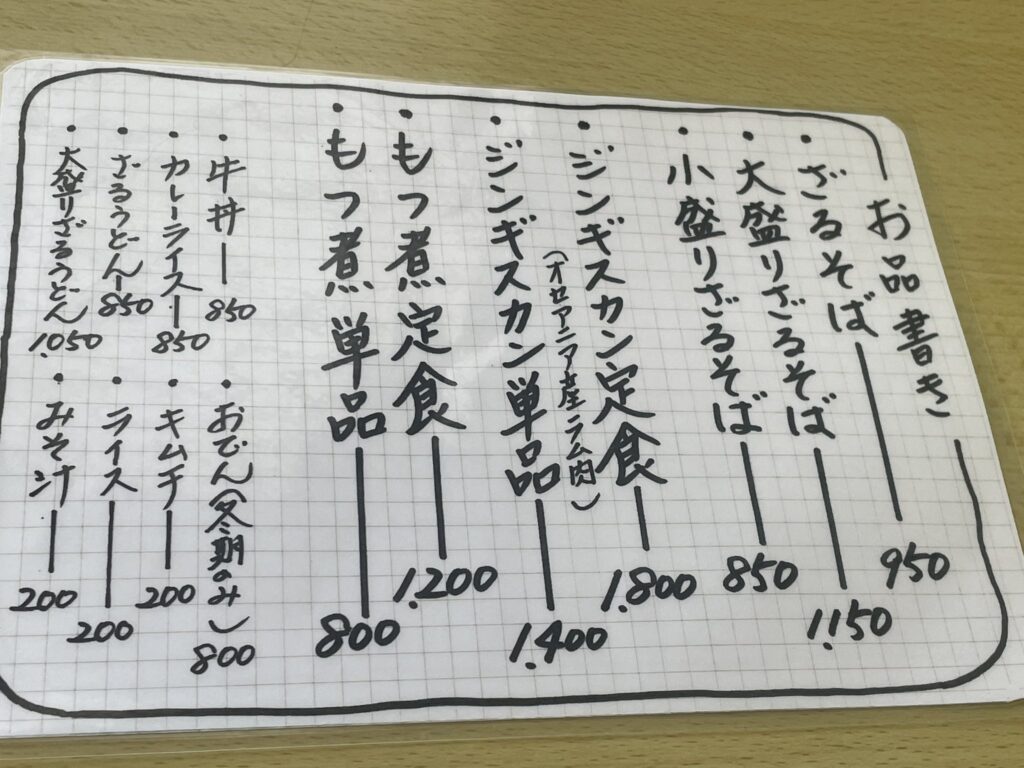 お品書き
・ざるそば 950
・大盛りざるそば 1.150
・小盛りざるそば 850
・ジンギスカン定食 1.800
（オセアニア産ラム肉）
・ジンギスカン単品 1.400
・もつ煮定食 1.200
・もつ煮単品 800
・牛丼 850
・カレーライス 850
・ざるうどん 850
・大盛りざるうどん 1.050
・おでん（冬期のみ） 800
・キムチ 200
・ライス 200
・みそ汁 200